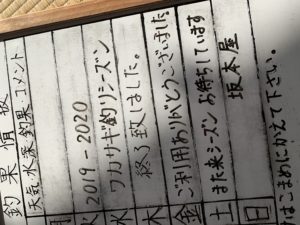 釣果情報
天気・水深・釣果・コメント
月
火 2019-2020
水 ワカサギ釣りシーズン
木 終了致しました。
金 ご利用ありがとうございました
土 また来シーズンお待ちしています
日 坂本屋
はこまめにかえて下さい。